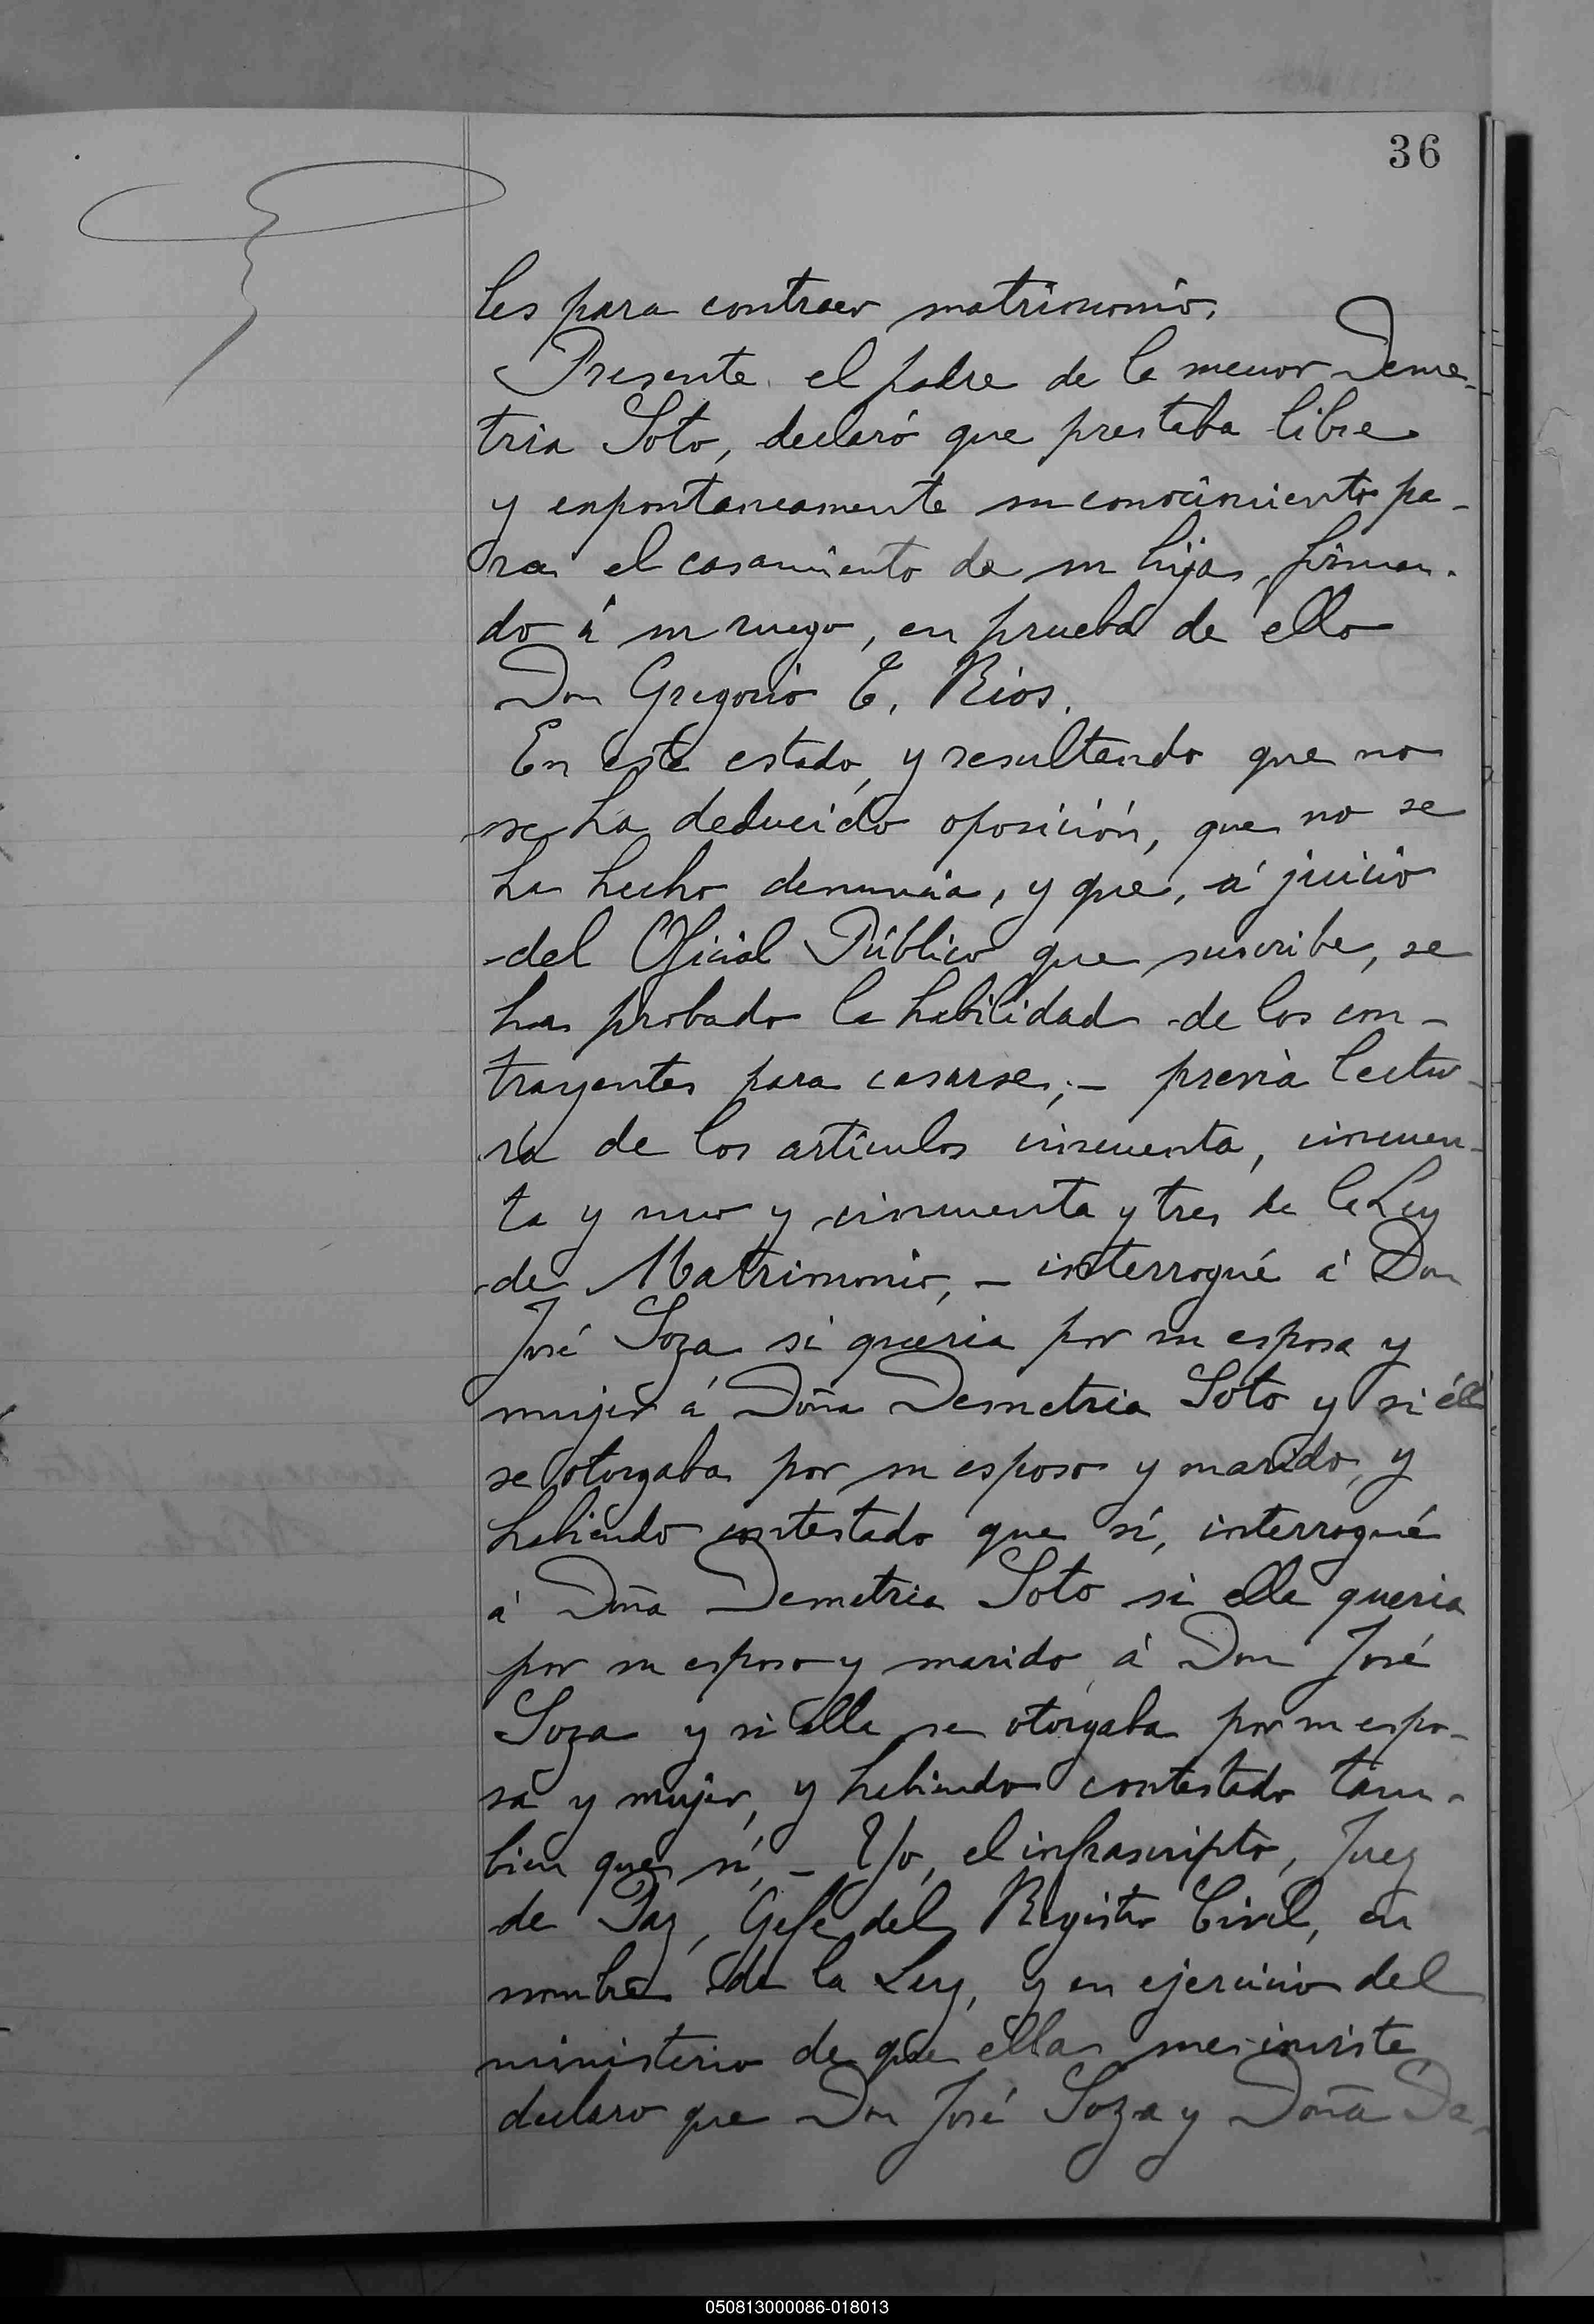 36
les para contraer matrimonio.
Presente el padre de la menor Deme-
tria Soto, declaró que prestaba libre
y expontaneamente su conocimiento pa-
ra el casamiento de su hija, firman-
do á su ruego, en prueba de ello
Don Gregorio E. Rios.
En este estado, y resultando que no
se ha deducido oposición, que no se
ha hecho denuncia, y que, á juicio
del Oficial Público que suscribe, se
ha probado la habilidad de los con-
trayentes para casarse,- previa lectu-
ra de los artículos cincuenta, cincuen-
ta y uno y cincuenta y tres de la Ley
de Matrimonio,- interrogué á Don
José Soza si queria por su esposa y
mujer á Doña Demetria Soto y si él
se otorgaba por su esposo y marido, y
habiendo contestado que sí, interrogué
á Doña Demetria Soto si ella queria
por su esposo y marido á Don José
Soza y si ella se otorgaba por su espo-
sa y mujer, y habiendo contestado tam-
bien que sí,- Yo, el infrascripto, Juez
de Paz, Gefe del Registro Civil, en
nombre de la Ley, y en ejercicio del
ministerio de que ella me inviste,
declaro que Don José Soza y Doña De-
050813000086-018013